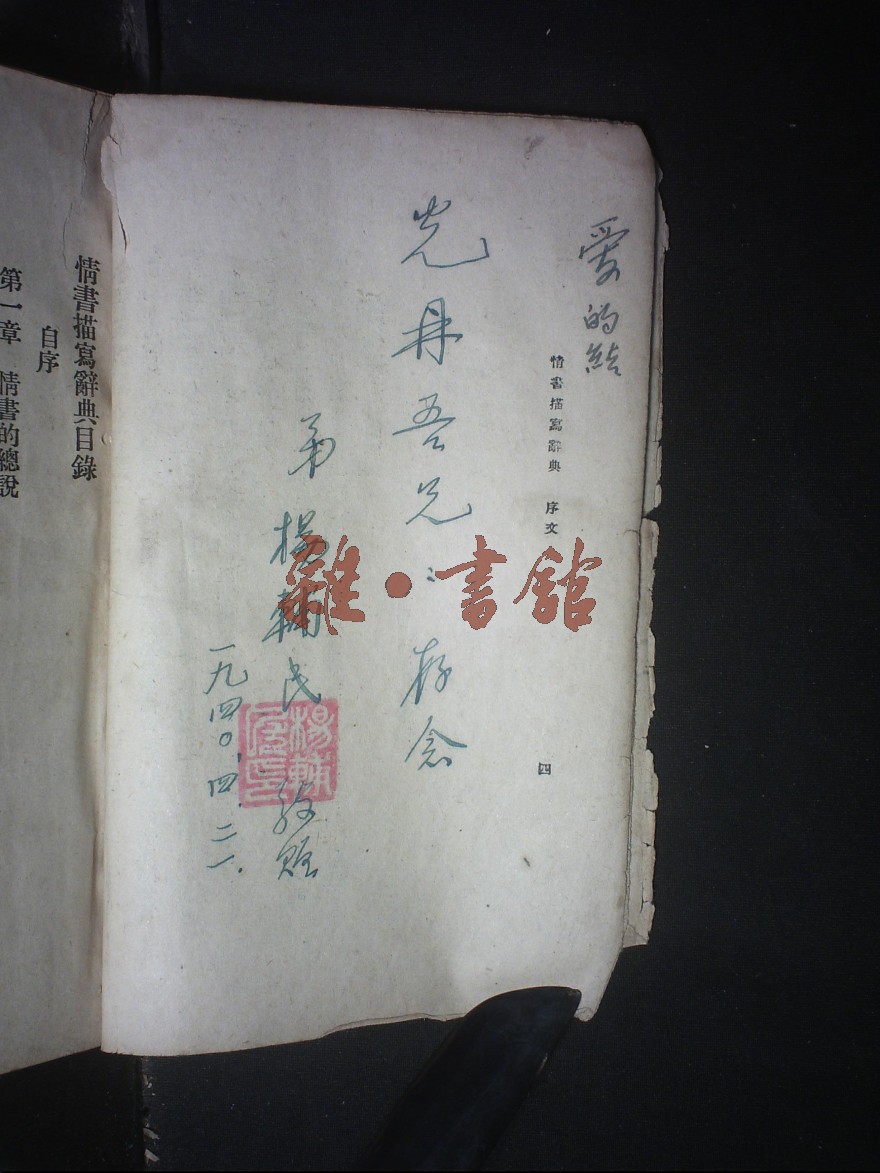 愛的結
情書描寫辭典 序文
四
光丹吾兄：存念
弟 楊輔民 敬贈
一九四〇.四.二一.
楊輔民印
雜·書館
情書描寫辭典目錄
自序
第一章 情書的總說